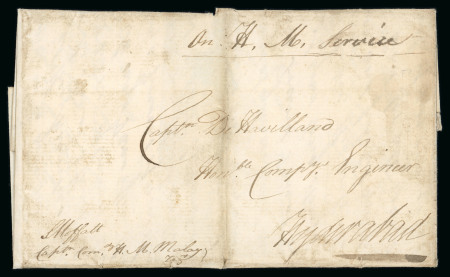 On H. M. Service
Captn. De Havilland
Honble. Compys. Engineer
Hyderabad
Moffatt
Captn. Comg. H. M. Malay